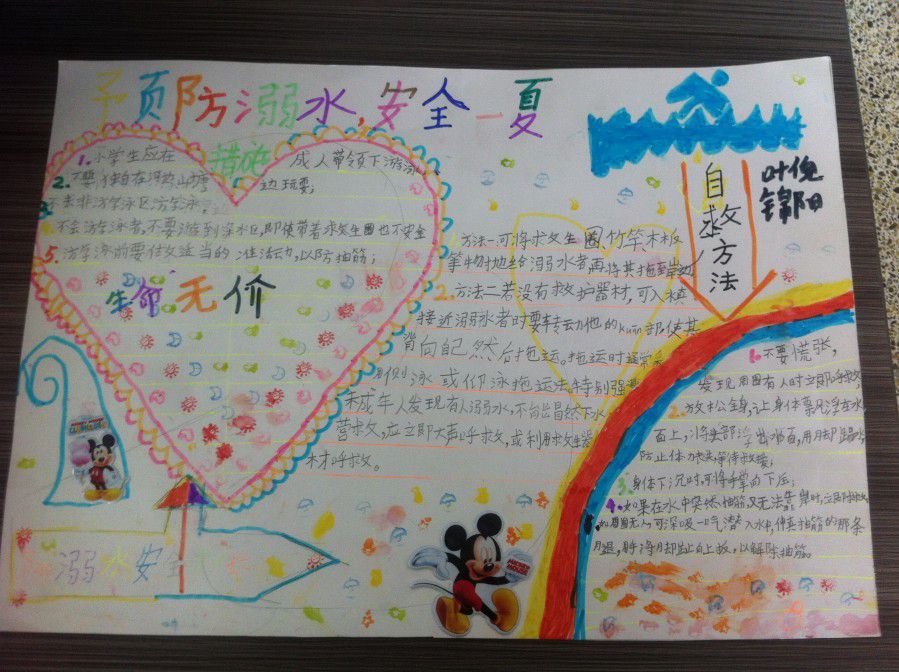 予页防溺水,安全一夏
措施
1.小学生应在
成人带领下游泳
2.不要独自在河边山塘
边玩耍;
3.不去非游泳区游泳;
4.不会游泳者,不要游到深水区,即使带着救生圈也不安全
5.游泳前要做适当的准活动,以防抽筋;
生命无价
叶倪
锦阳
自救方法
1.方法一可将求文生圈,竹竿,木板
等物抛给溺水者,再将其拖至岸边
2.方法二若没有救护器材,可入水
接近溺水者时要转动他的kuān部使其
背向自己然后拖运。拖运时通常采
用侧泳或仰泳拖运法特别强调
未成年人发现有人溺水,不能冒然下水
营救,应立即大声呼救,或利用救生器
材呼救。
1.不要慌张,
发现周围有人时立即呼救
2.放松全身,让身体票浮在水
面上,将头部浮出水面,用脚踢水
防止体力丧失等待救援;
3.身体下沉时,可将手掌向下压;
4.如果在水中突然抽筋,又无法靠岸时,立即求救
如周围无人,可深吸一口气潜入水中,伸直抽筋的那条
腿,用手将脚趾向上扳,以解除抽筋
溺水安全